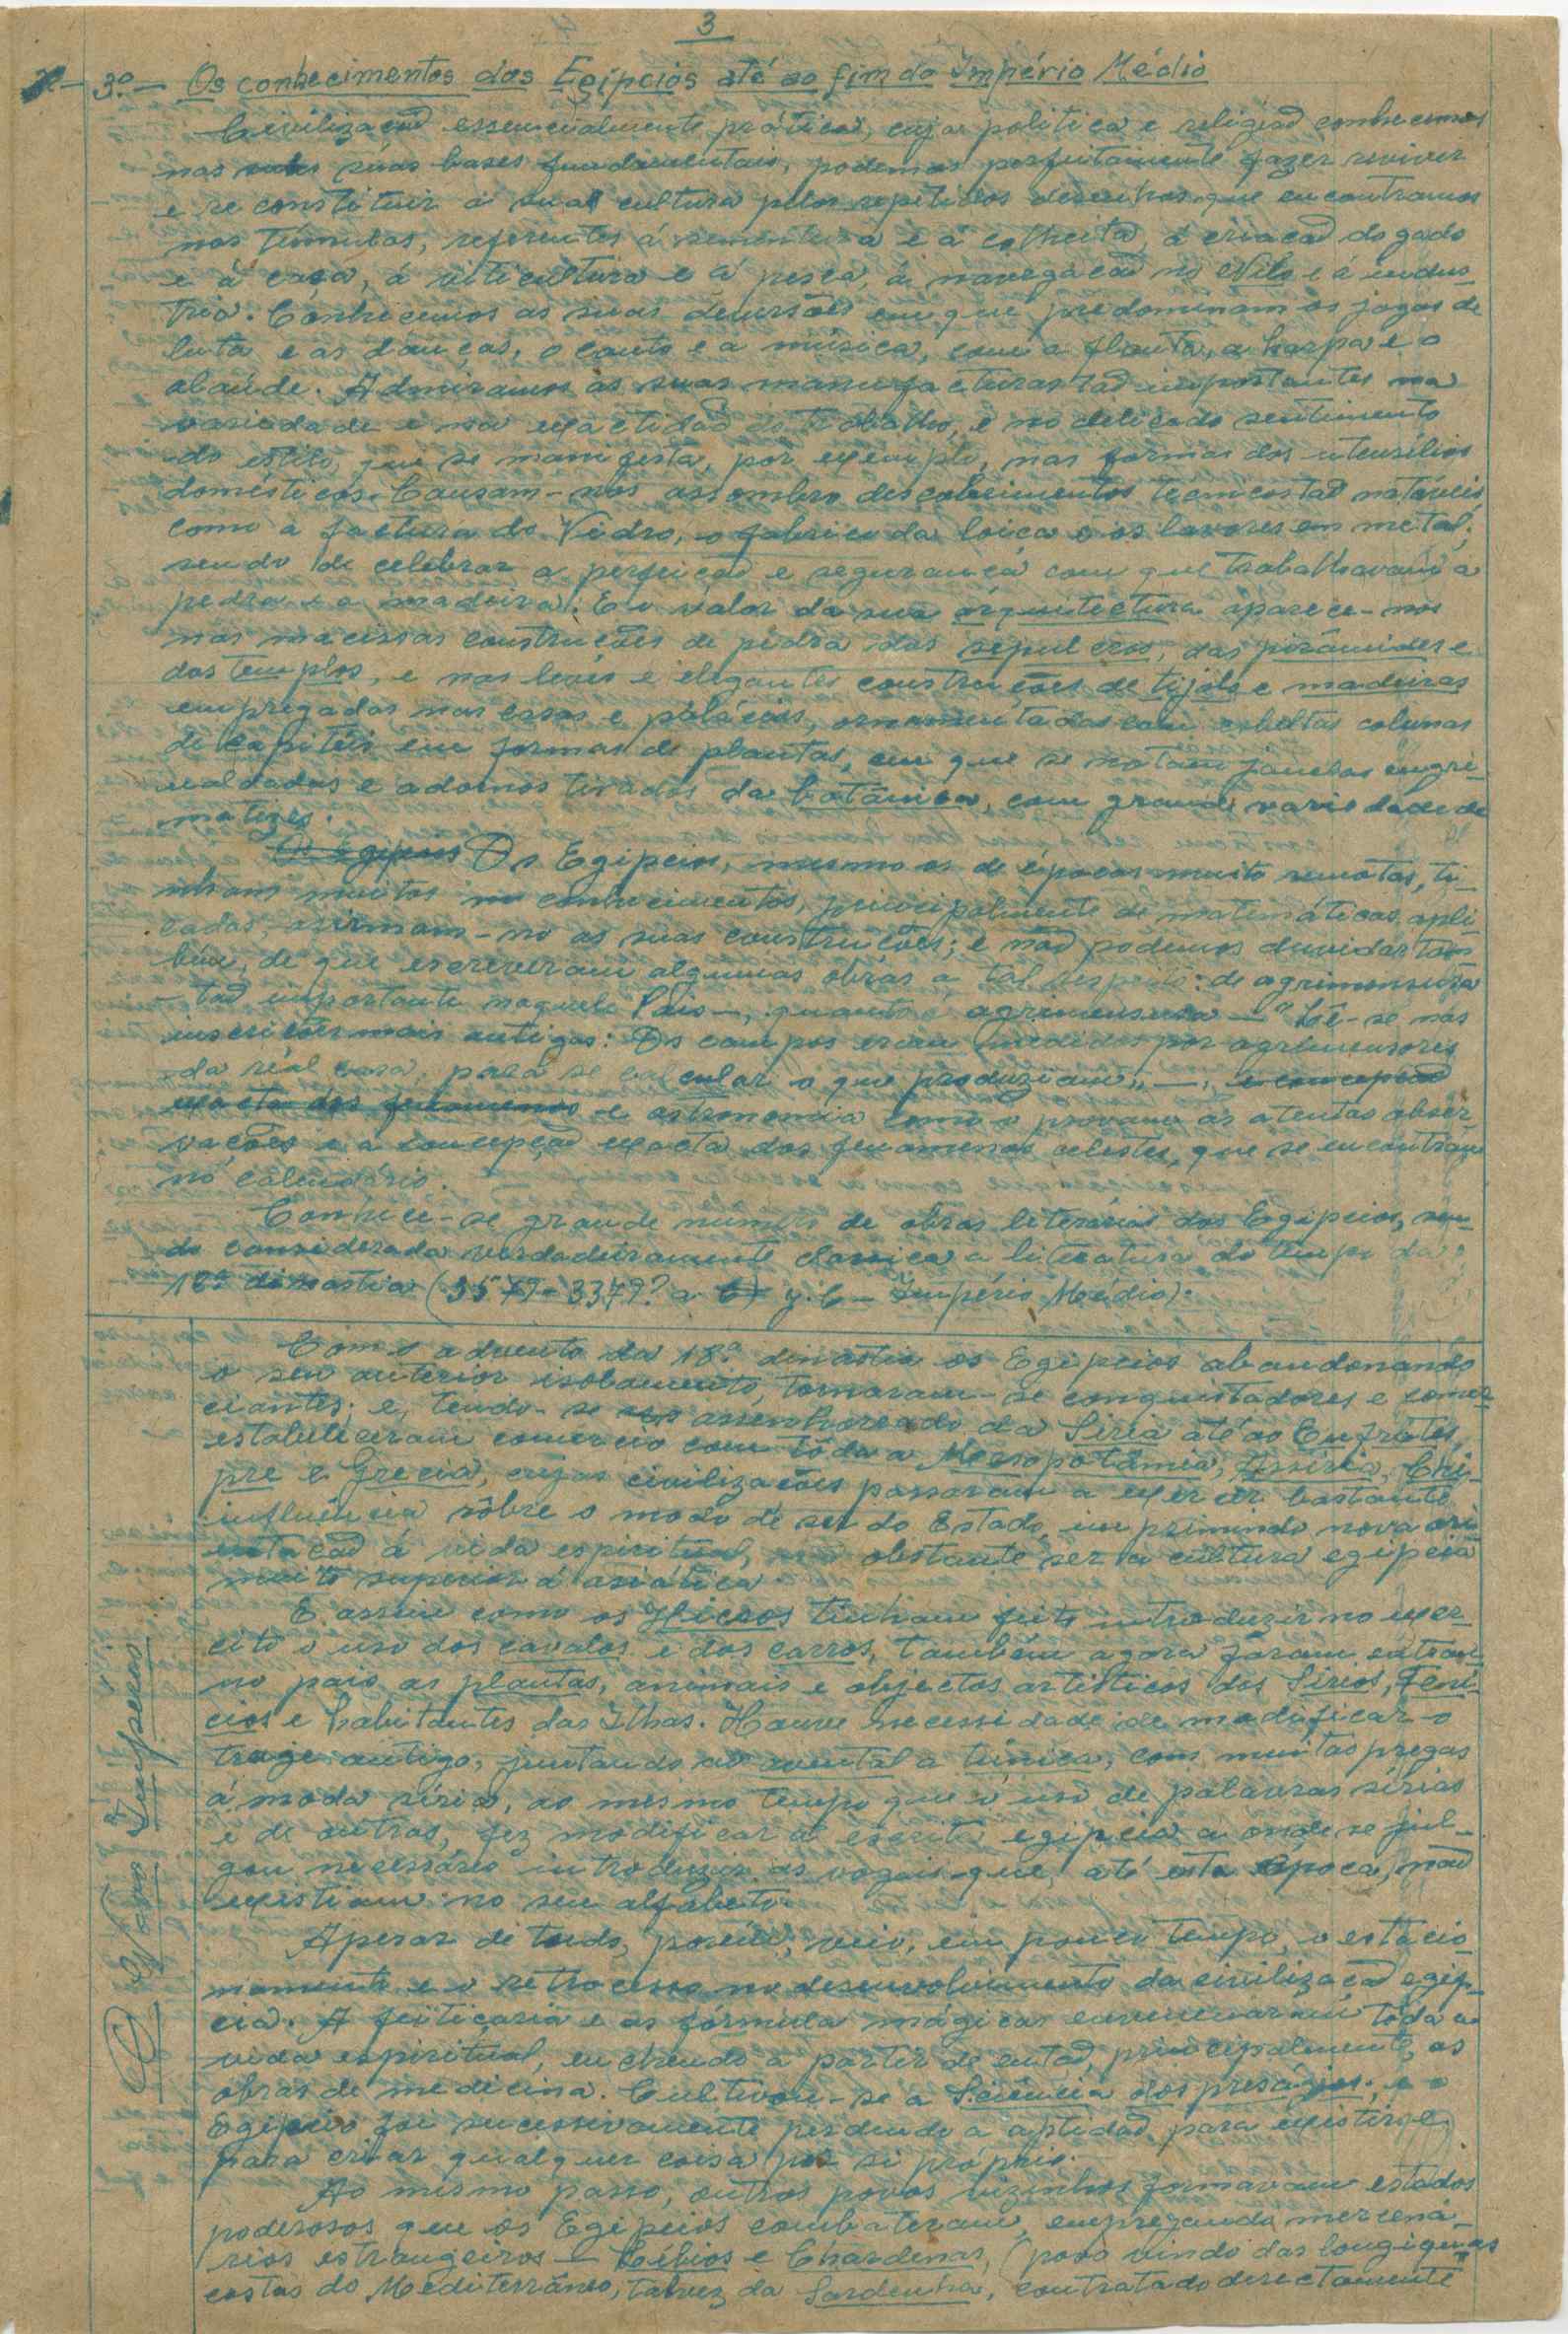 3
3º — Os conhecimentos dos Egípcios até ao fim do Império Médio
Civilização essencialmente prática, cuja politica e religião conhecemos
nas suas bases fundamentais, podemos perfeitamente fazer reviver
e reconstituir a sua cultura pelos repetidos desenhos que encontramos
nos túmulos, referentes á sementeira e á colheita, á criação do gado
e á caça, á viticultura e á pesca, á navegação no Nilo e á indus-
tria. Conhecemos as suas diversões em que predominam os jogos de
luta e as danças, o canto e a música, com a flauta, a harpa e o
alaúde. Admiramos as suas manufacturas tão importantes na
variedade e na exactidão do trabalho, e no delicado sentimento
do estilo, que se manifesta, por exemplo, nas formas dos utensílios
domésticos. Causam-nos assombro descobrimentos técnicos tão notáveis
como a factura do Vidro, o fabrico da loiça e os lavores em metal;
sendo de celebrar a perfeição e segurança com que trabalhavam a
pedra e a madeira. E o valor da sua arquitectura aparece-nos
nas macissas construções de pedra dos sepulcros, das pirâmides e
dos templos, e nas leves e elegantes construções de tijolo e madeiras
empregadas nas casas e palácios, ornamentadas com esbeltas colunas
de capitéis em formas de plantas, em que se notam janelas engri-
naldadas e adornos tirados da botânica, com grande variedade de
matizes.
Os Egipcios Os Egipcios, mesmo os de épocas muito remotas, ti-
nham muitos conhecimentos, principalmente de matemáticas apli-
cadas, afirmam-no as suas construções; e não podemos duvidar tam
bém, de que escreveram algumas obras a tal respeito: de agrimensura
— tão importante naquele Pais —, quanto a agrimensura — "Lê-se nas
inscrições mais antigas: Os campos eram medidos por agrimensores
da real casa, para se calcular o que produziam" —, e concepção
exacta dos fenomenos e astronomia como o provam as atentas obser
vações e a concepção exacta dos fenomenos celestes, que se encontram
no calendário.
Conhece-se grande numero de obras literárias dos Egipcios, sen-
do considerada verdadeiramente classica a literatura do tempo da
12ª dinastia (3579-3379? a. J.C — Império Médio).
Com o advento da 18.ª dinastia os Egipcios abandonando
o seu anterior isolamento, tornaram-se conquistadores e comer
ciantes; e, tendo-se assenhoreado da Siria até ao Eufrates,
estabeleceram comercio com tôda a Mesopotâmia, Assiria, Chi-
pre e Grecia, cujas civilizações passaram a exercer bastante
influência sôbre o modo de ser do Estado, imprimindo nova ori
entação á vida espiritual, não obstante ser a cultura egipcia
muito superior á asiática.
E assim como os Hicsos tinham feito introduzir no exer-
cito o uso dos cavalos e dos carros, também agora foram entran
no pais as plantas, animais e objectos artisticos dos Sirios, Feni-
cios e habitantes das Ilhas. Houve necessidade de modificar o
traje antigo, juntando ao avental a túnica, com muitas pregas
á moda siria, ao mesmo tempo que o uso de palavras sírias
e de outras, fez modificar a escrita egipcia a onde se jul-
gou necessário introduzir as vogais que, até esta época, não
existiam no seu alfabeto.
O Novo Império
Apesar de tudo, porém, veio, em pouco tempo, o estacio
namento e o retrocesso no desenvolvimento da civilização egip-
cia. A feitiçaria e as fórmula mágicas envenenaram tôda a
vida espiritual, enchendo a partir de então, principalmente, as
obras de medicina. Cultivou-se a Sciência dos preságios; e o
Egipcio foi sucessivamente perdendo a aptidão para existir e
para criar qualquer coisa por si próprio.
Ao mesmo passo, outros povos vizinhos formavam estados
poderosos que os Egipcios combateram, empregando mercená-
rios estrangeiros — Líbios e Chardenas, (povo vindo das longiquas
costas do Mediterrâneo, talvez da Sardenha, contratado directamente